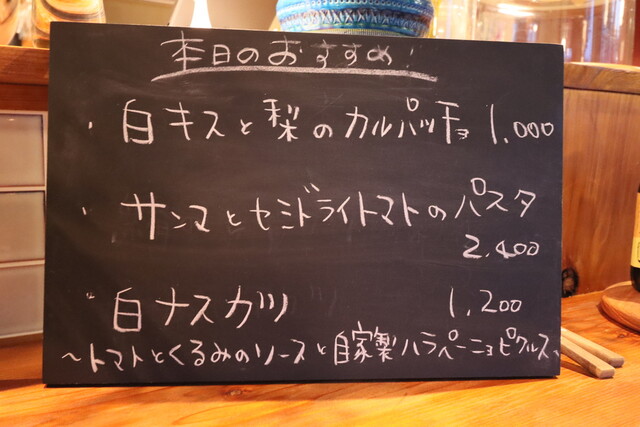 本日のおすすめ!
・白キスと梨のカルパッチョ 1.000
・サンマとセミドライトマトのパスタ
2.400
・白ナスカツ 1,200
~トマトとくるみのソースと自家製ハラペーニョピクルス~